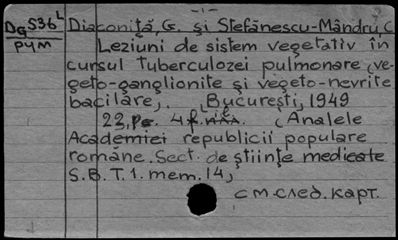 -1-
Dg S36 L Diaconiţă, G. şi Ştefănescu-Mândru, C.
РУМ Leziuni de sistem vegetativ în
cursul tuberculozei pulmonare (ve-
geto-ganglionite şi vegeto-nevrite
bacilare). Bucureşti, 1949
22 p. 4 f. (Analele
Academiei republicii populare
române. Sect. de ştiinţe medicale
S.B. T.1. mem. 14)
см. след. карт.